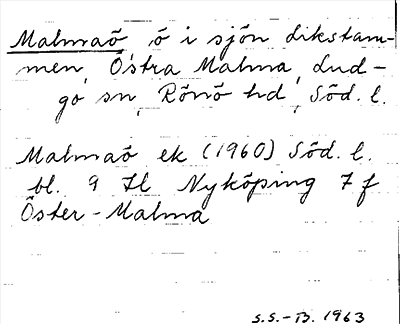 Malmaö, ö i sjön Likstam-
men, Östra Malma, Lud-
go sn, Rönö hd, Söd. l.
Malmaö ek (1960) Söd. l.
bl. 9 Il Nyköping 7 f
Öster-Malma
S.S.-B. 1963